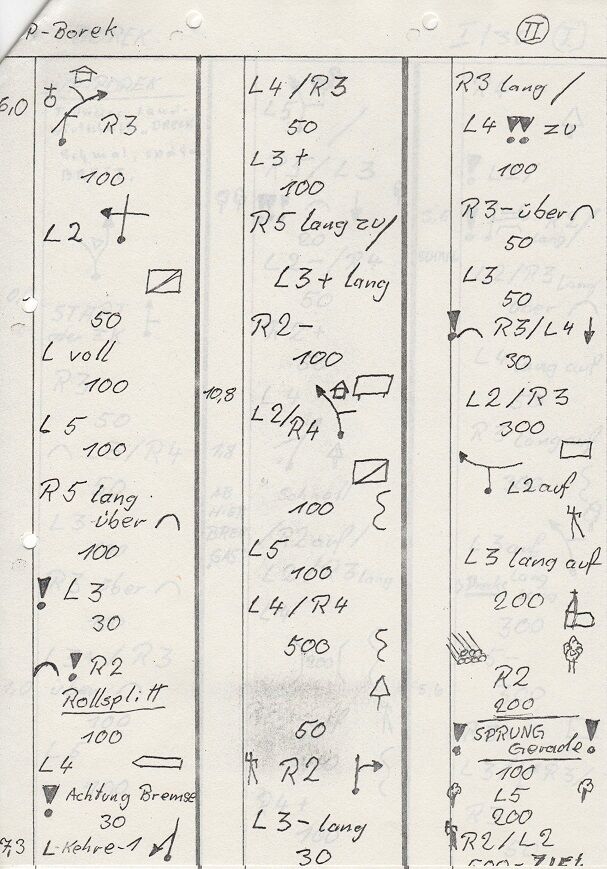 P-Borek
II
6,0
R3
100
L2
50
L voll
100
L5
100
R5 lang
über
100
! L3
30
! R2
Rollsplitt
100
L4
! Achtung Bremse
30
7,3
L-Kehre-1
L4/R3
50
L3+
100
R5 lang zu/
L3+ lang
R2-
100
10,8
L2/R4
100
L5
100
L4/R4
500
50
R2
L3- lang
30
R3 lang/
L4 !! zu
100
R3-über
50
L3
50
! R3/L4
30
L2/R3
300
L2 auf
L3 lang auf
200
R2
200
! SPRUNG !
Gerade
100
L5
200
R2/L2
500-ZIEL